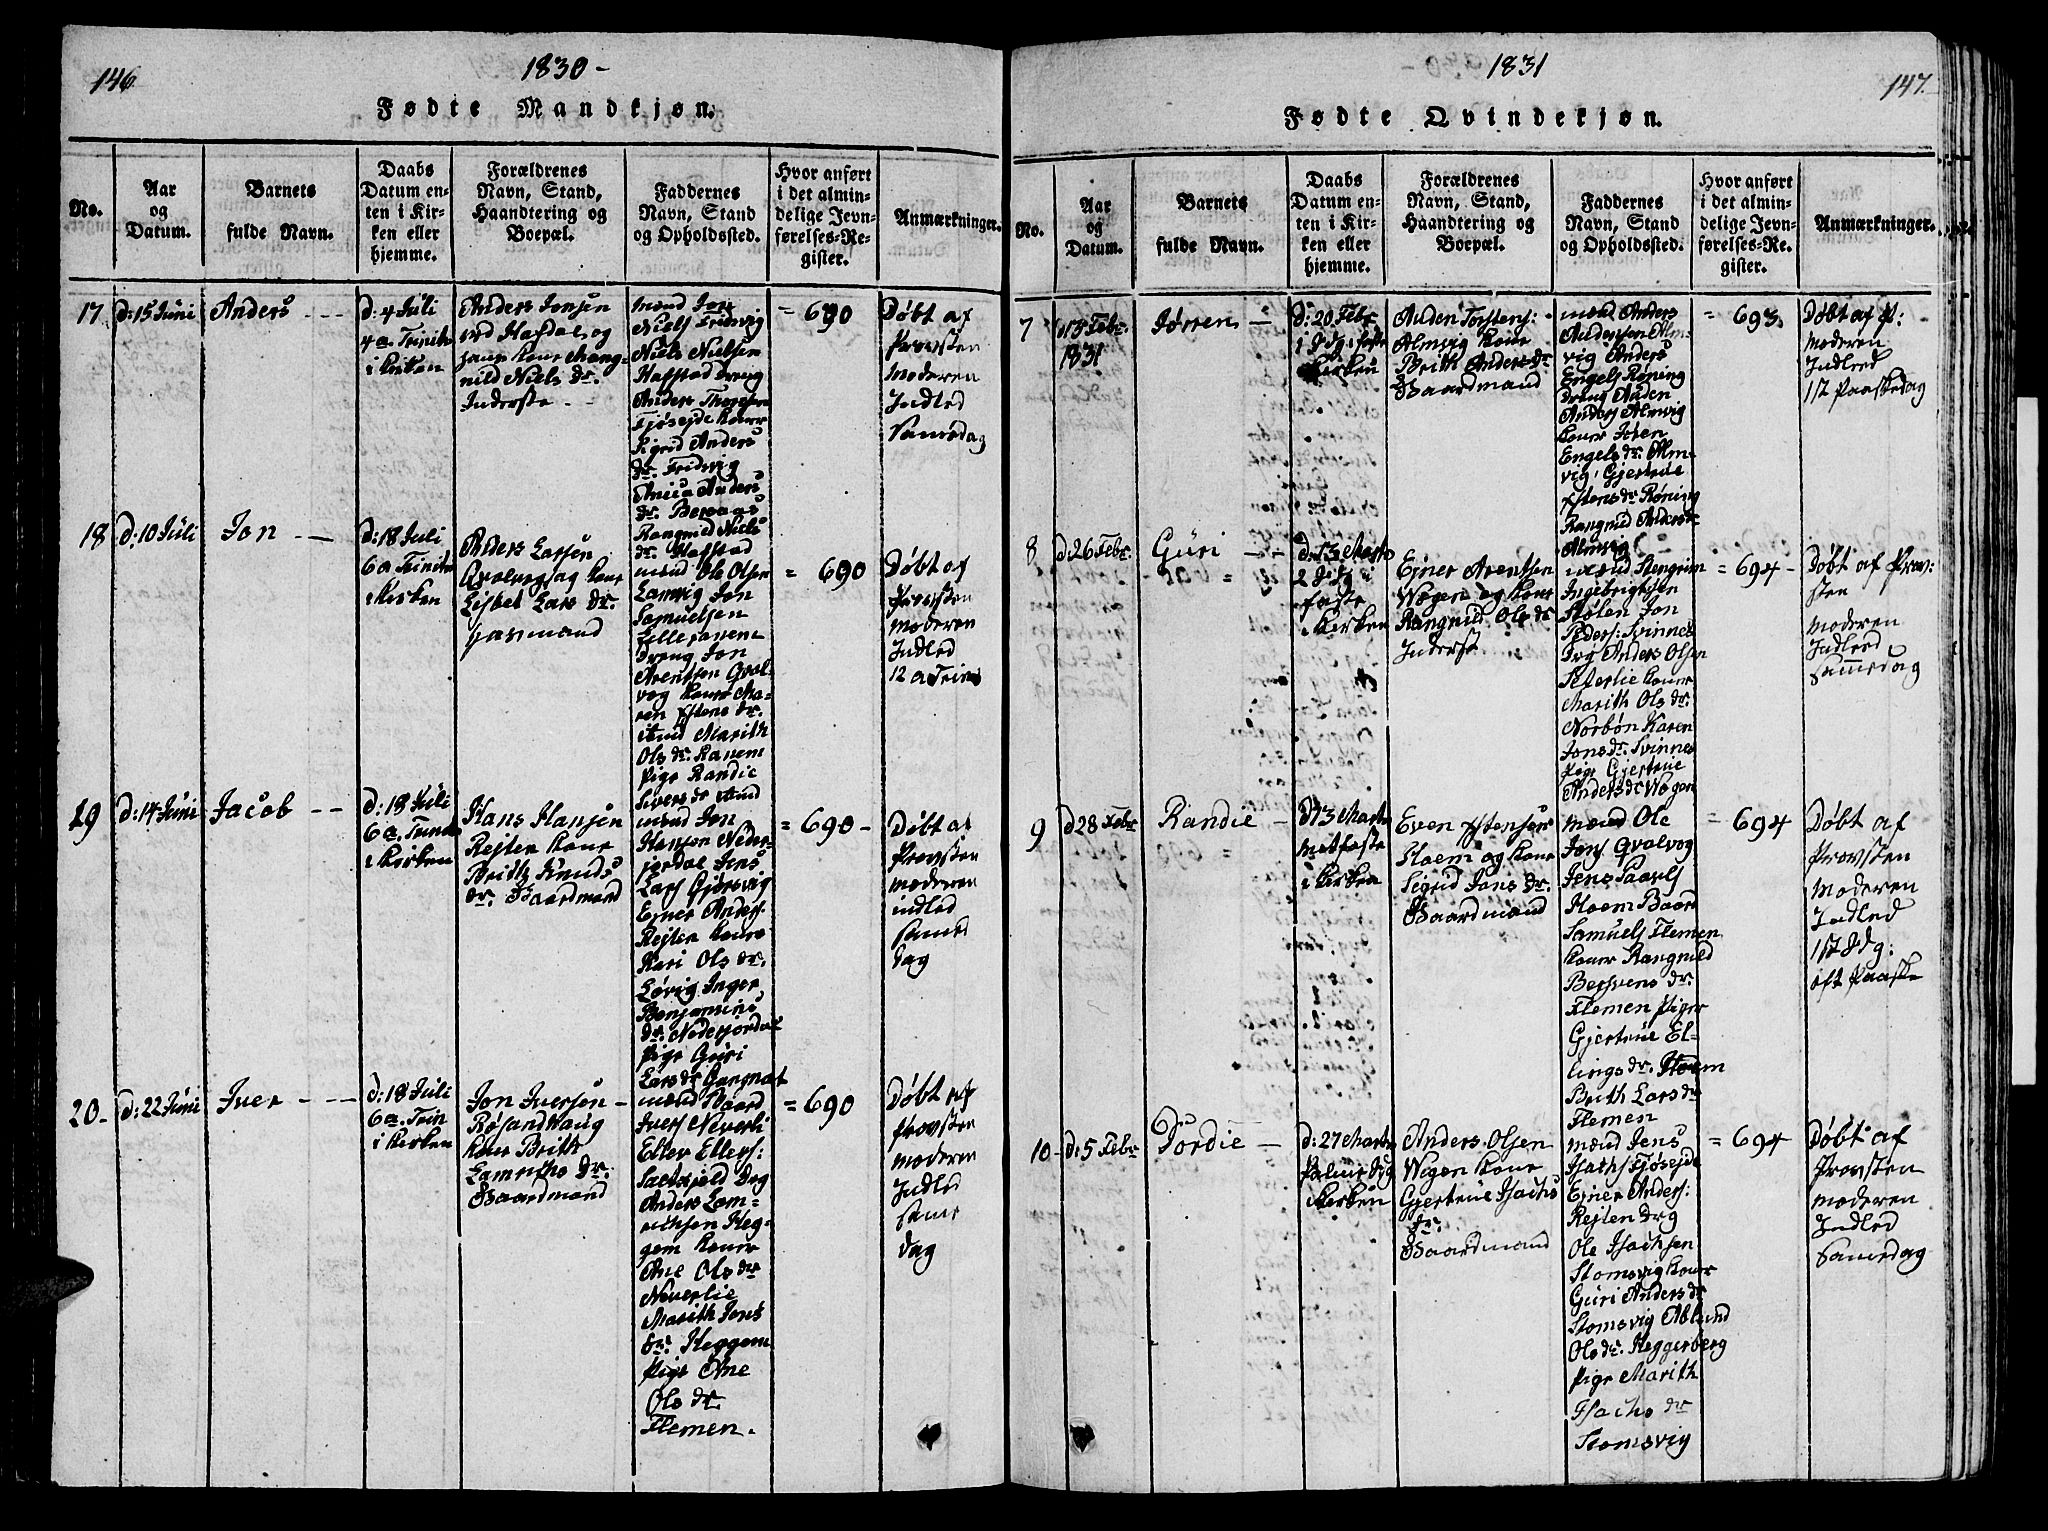 146
1830 -
Fødte Mandkjøn.
No.
Aar
og
Datum.
Barnets
fulde Navn.
Daabs
Datum en-
ten i Kir-
ken eller
hjemme.
Forældrenes
Navn, Stand,
Haandtering og
Boepæl.
Faddernes
Navn, Stand
og Opholdssted.
Hvor anført
i det almin-
delige Jevn-
førelses-Re-
gister.
Anmærkninger.
17
d: 15 Juni
Anders
d: 4 Juli
4 a Trinit
i kirken
Anders Jonsen
og
hans kone
nild Niels dr.
Inderste
mænd Jon
Niels Fridsvig
Niels Nielsen
Hafstad dreng
Anders
koner
Sigrid Anders
dr. Fridsvig
Anders
dr.
Rangnild Niels
dr. Hafstad
= 690
Døbt af
Provsten
moderen
Indled
samedag
18
d: 10 Juli
Jon
d: 18 Juli
6 a Trinit
i kirken
Anders Larsen
Qvalvog og kone
Lisbet Lars dr.
mænd Ole Olsen
Jon
Samuelsen
dreng Jon
Arentsen Qval-
vog koner Ma-
ren Estens dr.
Marith
Ols dr. kanem
pige Randie
Sivers dr.
= 690
Døbt af
Provsten
moderen
Indled
12 a Trin
19
d: 14 Juni
Jacob
d: 18 Juli
6 a. Trinit
i kirken
Hans Hansen
Rejten kone
Brith Knuds
dr. Gaardmand
mænd Jon
Hansen Neder-
jordal Jens
Lars Gjørsvig
Ejner Anders.
Rejten koner
Kari Ols dr.
Løvig Inger
Benjamins
dr. Nederjordal
pige Guri
Lars dr Gangnat
= 690 -
Døbt af
Provsten
moderen
indled
samme
dag
20 -
d: 22 Juni
Iver
d: 18 Juli
6 a. Trin
i kirken
Jon Iversen
Røsandhaug
kone Brith
dr.
Gaardmand
mænd Baard
Ivers Neverli
Eller Ellers:
Drg
Anders Lam-
richsen Heg-
gem koner
Ane Ols dr
Neverlie
Marith Jons
dr. Heggem
pige Ane
Ols dr.
Flemen.
= 690
Døbt af
Provsten
moderen
Indled
same
dag
1831
147.
Fødte Qvindekjøn.
No.
Aar
og
Datum.
Barnets
fulde Navn.
Daabs
Datum en-
ten i Kir-
ken eller
hjemme.
Forældrenes
Navn, Stand,
Haandtering og
Boepæl.
Faddernes
Navn, Stand
og Opholdssted.
Hvor anført
i det almin-
delige Jevn-
førelses-Re-
gister.
Anmærkninger.
7
13 Febr.
1831
Jørren
d: 20 Febr
1 Sdg i faste
kirken
Auden Torstens:
Almvig kone
Brith Anders dr
Gaardmand
mænd Anders
Audensen Alm-
vig Anders
Engels Røning
dreng Auden
Anders Almvig
koner
Engels dr. Alm-
vig Gjertrue
Estens dr Røning
Rangnild Anders dr
Almvig
= 693
Døbt af P:
moderen
Indled
1st Paaskedag
8
d: 26 Febr.
Guri
d: 13 Marts
i
faste
kirken
Ejner Arentsen
Wogen og kone
Rangnild Ols dr
Inderst
mænd Stengrim
Ingebrigtsen
Stølen Jon
Peders: Svinnes
Drg Anders Olsen
koner
Marith Ols dr.
Norbøn Karen
Jons dr. Svinnes
pige Gjertrue
Anders dr Wogen
= 694 -
Døbt af Prov:
sten
moderen
Indled
samedag
9
d 28 Febr
Randie
d 13 Marts
midfaste
i kirken
Even Estensen
Hoem og kone
Sigrid Jons dr.
Gaardmand
mænd Ole
Jons Qvalvog
Jens Paavels
Hoem Baard
Samuels Flemen
koner Rangnild
dr.
Flemen piger
Gjertrue El-
lings dr. Hoem
Brith Lars dr
Flemen
= 694
Døbt af
Provsten
moderen
Indled
1st Sdg:
eft Paaske
10 -
d: 5 Febr
Gordie
d: 27 Marts
Palme Sdg
kirken
Anders Olsen
Wogen kone
Gjertrue Isachs
dr.
Gaardmand
mænd Jens
Isachs Fjøsejde
Ejner Anders:
Rejten Drg
Ole Isachsen
Stomsvig koner
Guri Anders dr
Stomsvig Ablund
Ols dr. Heggerberg
pige Marith
Isachs dr
Stomsvig
= 694
Døbt af
Provsten
moderen
Indled
samedag